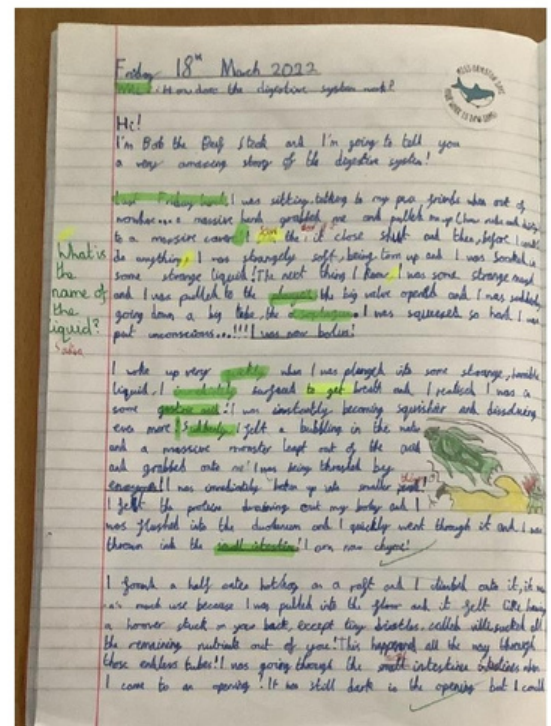 Friday 18th March 2022
How does the digestive system work?
Hi!
I'm Bob the Beef Steak and I'm going to tell you
a very amazing story of the digestive system!
I was sitting, talking to my pea friends when out of
nowhere... a massive hand grabbed me and pulled me up
to a massive it close shut and then, before I could
do anything, I was strangely soft, being torn up and I was soaked in
some strange liquid! The next thing I knew, I was some strange
and I was pulled to the the big valve opened and I was suddenly
going down a big tube, the I was squeezed so hard I was
put unconscious...!!! I was now bolus!
What is
the
name of
the
liquid?
Saliva
I woke up very quickly when I was plunged into some strange, horrible
liquid. I immediately surfaced to get breath and I realised I was in
some gastric acid! I was instantly becoming squishier and dissolving
even more! Suddenly I felt a bubbling in the
and a massive monster leapt out of the acid
and grabbed onto me! I was being thrashed by
I was immediately up into smaller
I felt the protein draining out my body and I
was flushed into the duodenum and I quickly went through it and I was
thrown into the small intestine! I am now chyme!
I found a half eaten hotdog as a raft and I climbed onto it, it
much use because I was pulled into the floor and it felt like having
a hoover stuck on your back, except tiny called villi sucked all
the remaining nutrients out of you! This happened all the way through
those endless tubes! I was going through the small intestines when
I came to an opening! It was still dark in the opening but I could